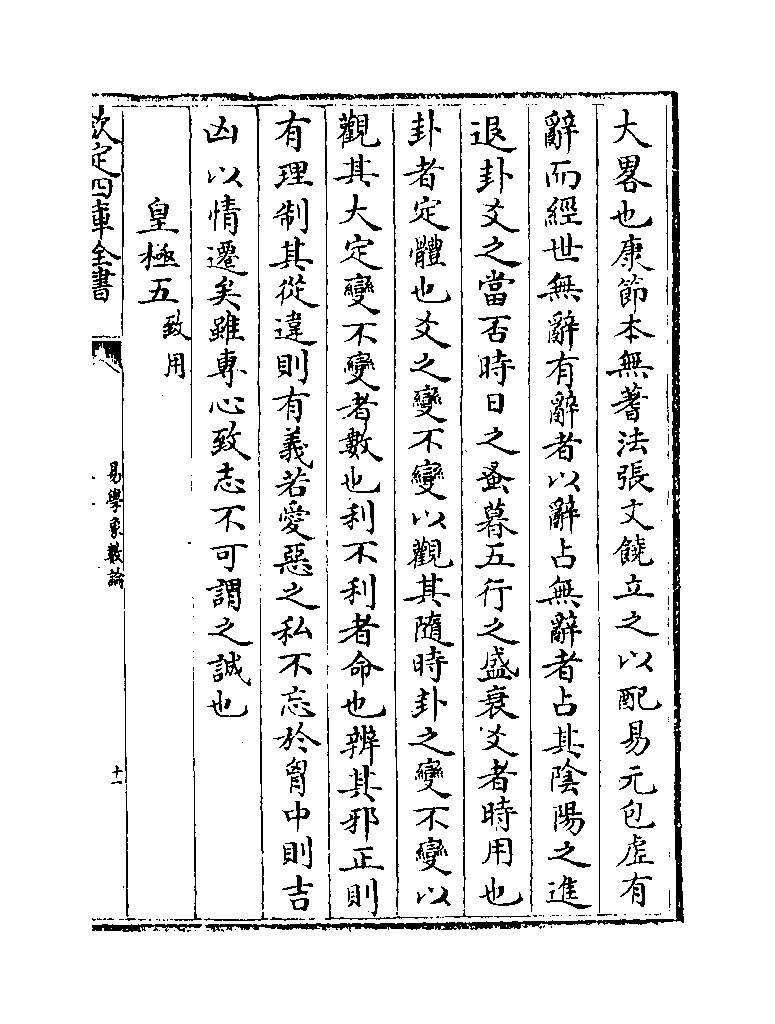 大畧也康節本無蓍法張文饒立之以配易元包虛有
辭而經世無辭有辭者以辭占無辭者占其陰陽之進
退卦爻之當否時日之蚤暮五行之盛衰爻者時用也
卦者定體也爻之變不變以觀其隨時卦之變不變以
觀其大定變不變者數也利不利者命也辨其邪正則
有理制其從違則有義若愛惡之私不忘於胷中則吉
凶以情遷矣雖專心致志不可謂之誠也
皇極五致用
欽定四庫全書
易學象數論
十一